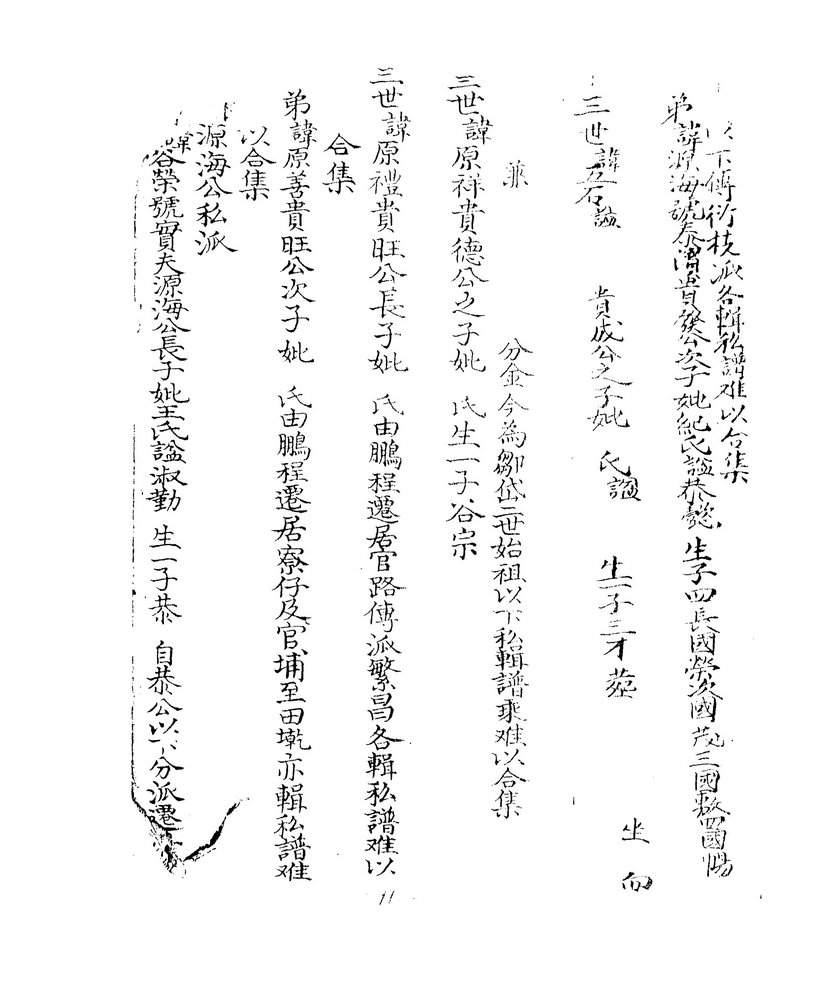 以下傳衍枝派各輯私譜难以合集
弟諱源海號泰 貴發公次子妣紀氏謚恭懿 生子四長國榮次國茂三國敷四國惕
三世諱 石謚 貴成公之子妣 氏謚 生一子三才 葬 坐 向
兼 分金今為鄒岱二世始祖以下私輯譜乘难以合集
三世諱原祥貴德公之子妣 氏生一子谷宗
三世諱原禮貴旺公長子妣 氏由鵬程遷居官路傳派繁昌各輯私譜难以
合集
弟諱原善貴旺公次子妣 氏由鵬程遷居寮仔及官埔至田墘亦輯私譜难
以合集
源海公私派
諱谷榮號實夫源海公長子妣王氏謚淑勤 生一子恭 自恭公以下分派遷
11